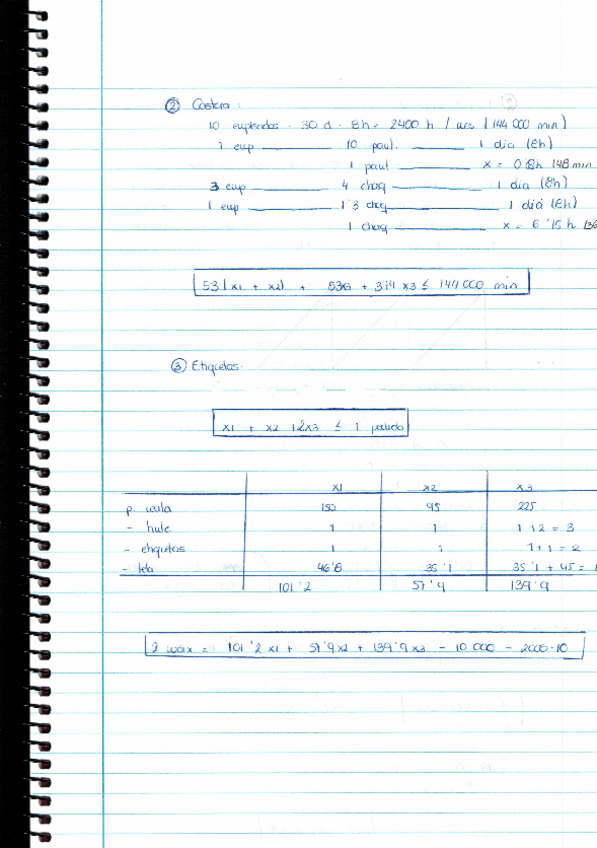 ② Costura:
10 empleados · 30 d · 8h = 2400 h / mes (144 000 min)
1 emp ———— 10 pant. ———— 1 día (8h)
1 pant ———— x = 0.8h 48 min
3 emp ———— 4 chaq ———— 1 día (8h)
1 emp ———— 1'3 chaq ———— 1 día (8h)
1 chaq ———— x = 6'15 h
53 (x1 + x2) + + x3 ≤ 144 000 min
③ Etiquetas.
x1 + x2 + 2x3 ≤ 1 pedido
x1 x2 x3
p. venta 150 95 225
- hule 1 1 1 + 2 = 3
- etiquetas 1 1 1 + 1 = 2
- tela 46'8 35'1 35'1 + 45 =
101'2 57'9 139'9
z max = 101'2 x1 + 57'9 x2 + 139'9 x3 - 10 000 - 2000·10